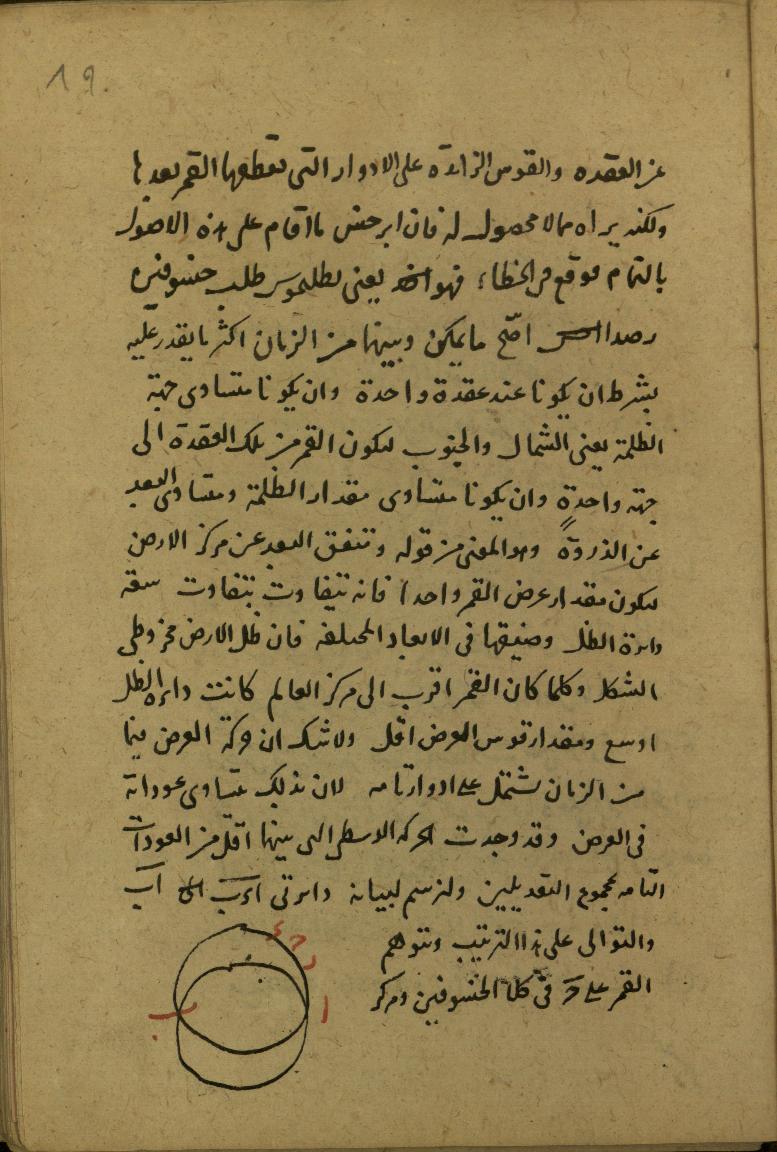 ١٩٠
عن العقدة والقوس الزائدة على الادوار التى تقطعها القمر بعدها
ولكنه يراه مما لا محصول له فان ابرخس ما اقام على هذه الاصول
بالتمام فوقع فى الخطاء فهو يعنى بطلميوس طلب خسوفين
رصدا اصح ما يمكن وبينهما من الزمان اكثر ما يقدر عليه
بشرط ان يكونا عند عقدة واحدة وان يكونا متساوى جهة
الظلمة يعنى الشمال والجنوب ليكون القمر من تلك العقدة الى
جهة واحدة وان يكونا متساوى مقدار الظلمة ومتساوى البعد
عن الذروة وهو المعنى من قوله وتتفق البعد عن مركز الارض
ليكون مقدار عرض القمر واحدا فانه تتفاوت بتفاوت سعة
دائرة الظل وضيقها فى الابعاد المختلفة فان ظل الارض مخروطى
الشكل وكلما كان القمر اقرب الى مركز العالم كانت دائرة الظل
اوسع ومقدار قوس العرض اقل ولا شك ان حركة العرض فيما
من الزمان تشتمل على ادوار تامه لان بذلك تتساوى عوداته
فى العرض وقد وجدت الحركه الوسطى التى بينهما اقل من العودات
التامه بمجموع التعديلين ولنرسم لبيانه دائرتى اب
والتوالى على هذا الترتيب ونتوهم
القمر على فى كلا الخسوفين ومركز
ا
ب